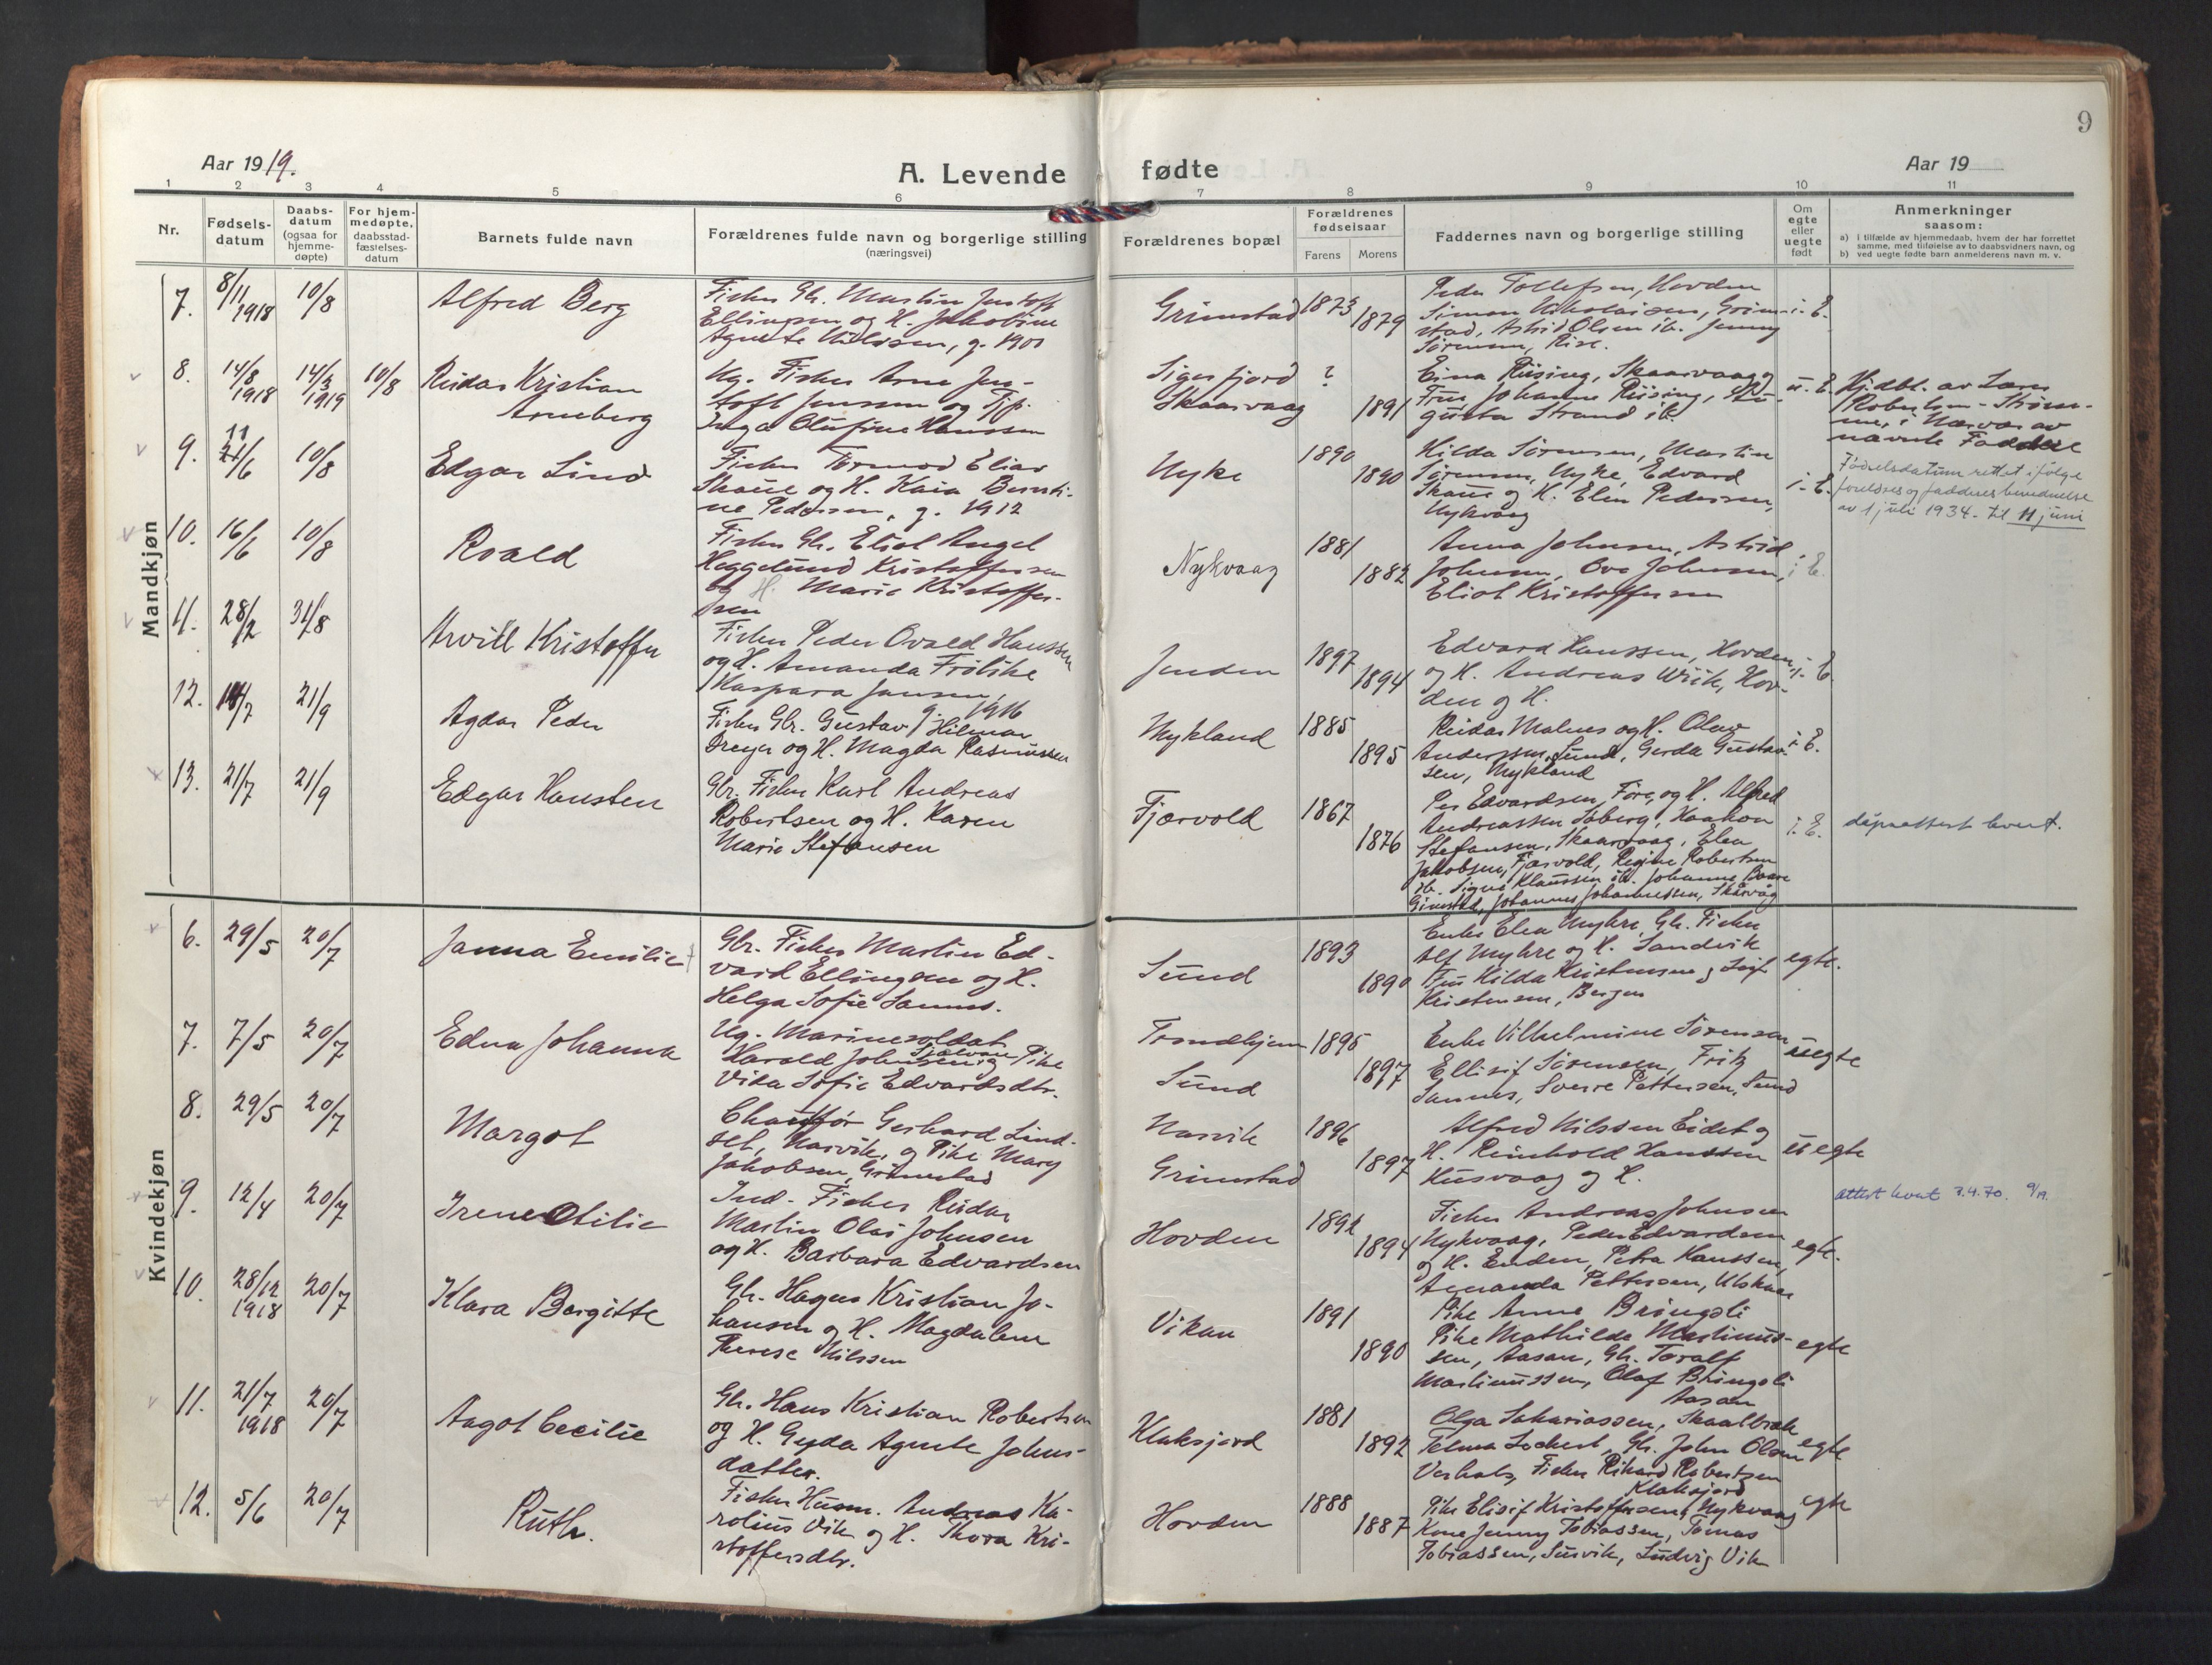 9
Aar 1919.
A. Levende
fødte
Aar 19
1 2 3 4 5 6 7 8 9 10 11
Nr.
Fødsels-
datum
Daabs-
datum
(ogsaa for
hjemme-
døpte)
For hjem-
medøpte,
daabsstad-
fæstelses-
datum
Barnets fulde navn
Forældrenes fulde navn og borgerlige stilling
(næringsvei)
Forældrenes bopæl
Forældrenes
fødselsaar
Farens Morens
Faddernes navn og borgerlige stilling
Om
egte
eller
uegte
født
Anmerkninger
saasom:
a) I tilfælde av hjemmedaab, hvem der har forrettet
samme, med tilføielse av to daabsvidners navn, og
b) ved uegte fødte barn anmelderens navn m. v.
Mandkjøn
7. 8/11 1918 10/8 Alfred Berg
Fisker Gbr. Martin Justoft
Ellingsen og H. Jakobine
Agnete Nilssen, g. 1900
Grimstad 1873 1879
Peder Tollefsen, Hovden
Simon Nikolaisen, Grim-
stad, Astrid Olsen ib. Jenny
Sørensen, Rise.
i. E.
8. 14/8 1918 14/3 1919 10/8 Reidar Kristian
Arneberg
Ug. Fisker Arne Jus-
toft Jensen og Tjp.
Inga Olufine Hanssen
Sigerfjord
Skaarvaag
? 1891
Eina Riising, Skaarvaag
Fru Johanne Riising, Au-
gusta Strand ib.
u. E.
Hjdbt. av Lærer
Robertsen-Strøm-
me, i Nærvær av
nævnte Faddere
9. 11 21/6 10/8 Edgar Lind
Fisker Tormod Elias
Skaue og H. Kaia Bernti-
ne Pedersen, g. 1912
Nyke 1890 1890
Hilda Sørensen, Martin
Sørensen, Nyke, Edvard
Skaue og H. Elen Pedersen,
Nykvaag
i. E.
Fødselsdatum rettet ifølge
forældres og fadderes bevidnelse
av 1 juli 1934. til 11 juni
10. 16/6 10/8 Roald
Fisker Gbr. Eliot Angel
Heggelund Kristoffersen
og H. Marie Kristoffer-
sen
Nykvaag 1881 1882
Anna Johnsen, Astrid
Johnsen, Ove Johnsen,
Eliot Kristoffersen
i E.
11. 28/2 31/8 Arvill Kristoffer
Fisker Peder Ovald Hanssen
og H. Amanda Frölike
Kaspara Jansen,
g. 1916
Jenden 1897 1894
Edvard Hanssen, Hovden,
og H. Andreas Wiik, Hov-
den og H.
i. E.
12. 14/7 21/9 Agdar Peder
Fisker Gbr. Gustav Hilmar
Dreyer og H. Magda Rasmussen
Nykland 1885 1895
Reidar Malnes og H. Olav
Anderssen, Sund, Gerda Gustav-
sen, Nykland
i E.
13. 21/7 21/9 Edgar Hansten
Gbr. Fisker Karl Andreas
Robertsen og H. Karen
Marie Stefansen
Fjærvold 1867 1876
Per Edvardsen, Føre, og H. Alfred
Andreassen Soberg, Haakon
Stefansen, Skaarvaag, Elea
Jakobsen, Fjærvold, Regine Robertsen
ib. Signe Klaussen ib. Johanna
Grimstad, Johannes Johannessen, Skårvåg
i. E.
dåpsattest levert.
Kvindekjøn
6. 29/5 20/7 Janna Emilie
Gbr. Fisker Martin Ed-
vard Ellingsen og H.
Helga Sofie Sannes.
Sund 1893 1890
Enke Elea Myhre, Gbr. Fisker
Alf Myhre og H. Sandvik
Fru Hilda Kristensen og Leif
Kristensen, Bergen
egte.
7. 7/5 20/7 Edna Johanna
Ug. Marinesoldat
Harald Johnsen og Pike
Vida Sofie Edvardsdtr.
Trondhjem
Sund
1895 1897
Enke Vilhelmine Sørensen
Ellisif Sørensen, Fritz
Sannes, Sverre Pettersen, Sund
uegte
8. 29/5 20/7 Margot
Chauffør Gerhard Lind-
set, Narvik, og Pike Mary
Jakobsen, Grimstad
Narvik
Grimstad
1896 1897
Alfred Nilssen Eidet og
H. Reinhold Hanssen
Husvaag og H.
uegte
9. 12/4 20/7 Irene Otilie
Ind. Fisker Reidar
Martin Olai Johnsen
og H. Barbara Edvardsen
Hovden 1892 1894
Fisker Andreas Johnsen
Nykvaag, Peder Edvardsen
og H. Enden, Petra Hanssen,
Amanda Pettersen, Utskaar
egte.
attest levert 7.4.70. 9/19.
10. 28/12 1918 20/7 Klara Bergitte
Gbr. Hagen Kristian Jo-
hansen og H. Magdalene
Therese Nilssen
Vikan 1891 1890
Pike Anna Bringsli
Pike Mathilde Martinus-
sen, Aasan, Gbr. Toralf
Martinussen, Olaf Bringsli
Aasan
egte
11. 21/7 1918 20/7 Aagot Cecilie
Gbr. Hans Kristian Robertsen
og H. Gyda Agnete Johns-
datter.
Klaksjord 1881 1892
Olga Sakariassen, Skaalbrek
Telma Lockert, Gbr. John Olsen
Verhals, Fisker Rikard Robertsen
Klaksjord
egte
12. 5/6 20/7 Ruth.
Fisker Husm. Andreas Ka-
rolius Vik og H. Thora Kri-
stoffersdtr.
Hovden 1888 1887
Pike Elisif Kristoffersen, Nykvaag
Kone Jenny Tobiassen, Tomas
Tobiassen, Survik, Ludvig Vik
egte